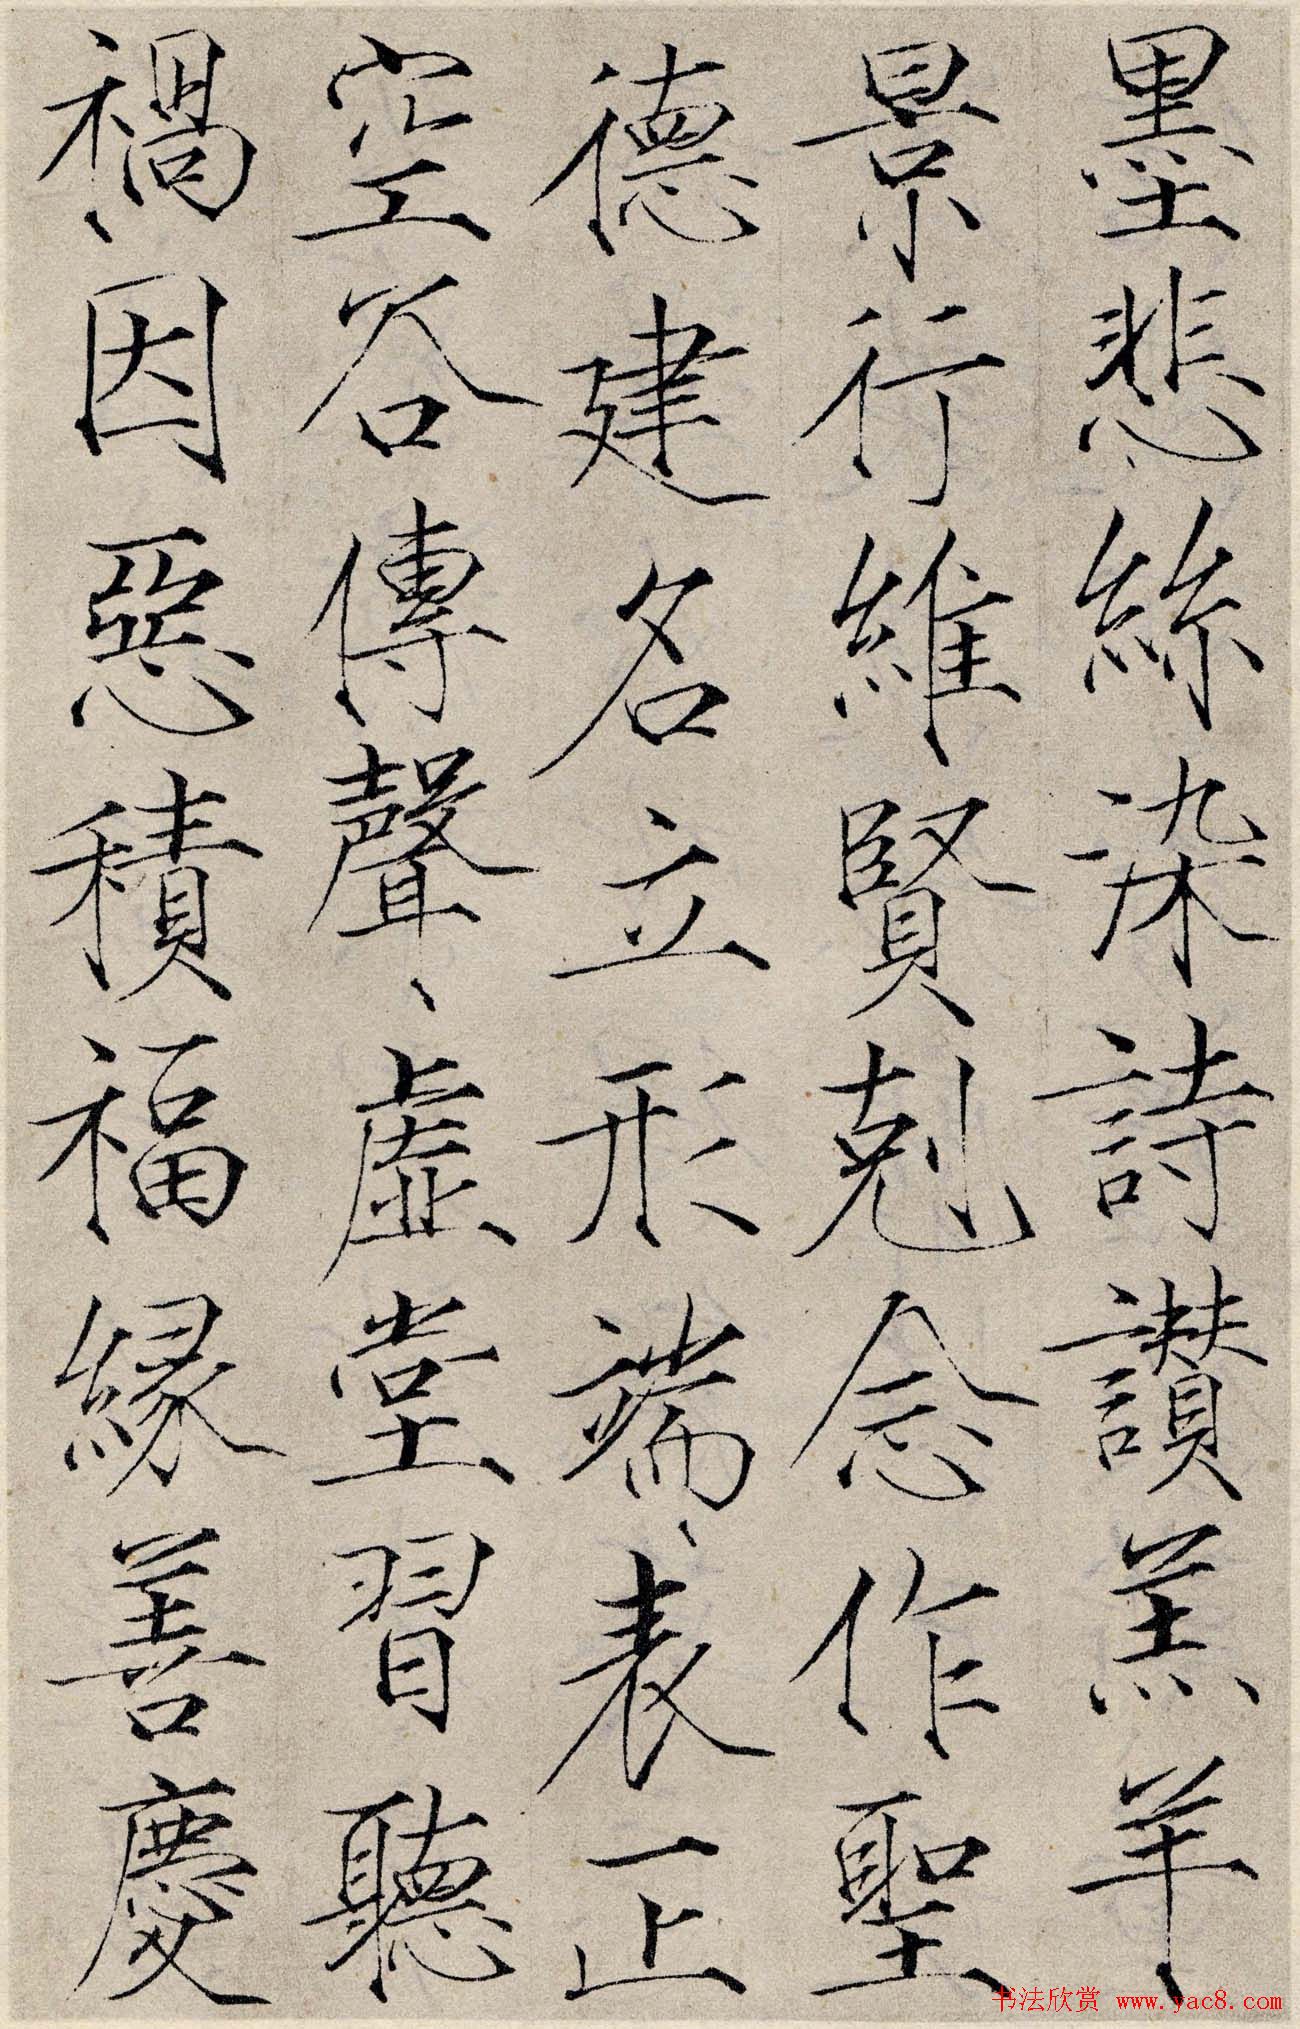 墨悲絲染詩讃羔羊
景行維賢剋念作聖
德建名立形端表正
空谷傳聲虛堂習聽
禍因惡積福緣善慶
书法欣赏 www.yac8.com